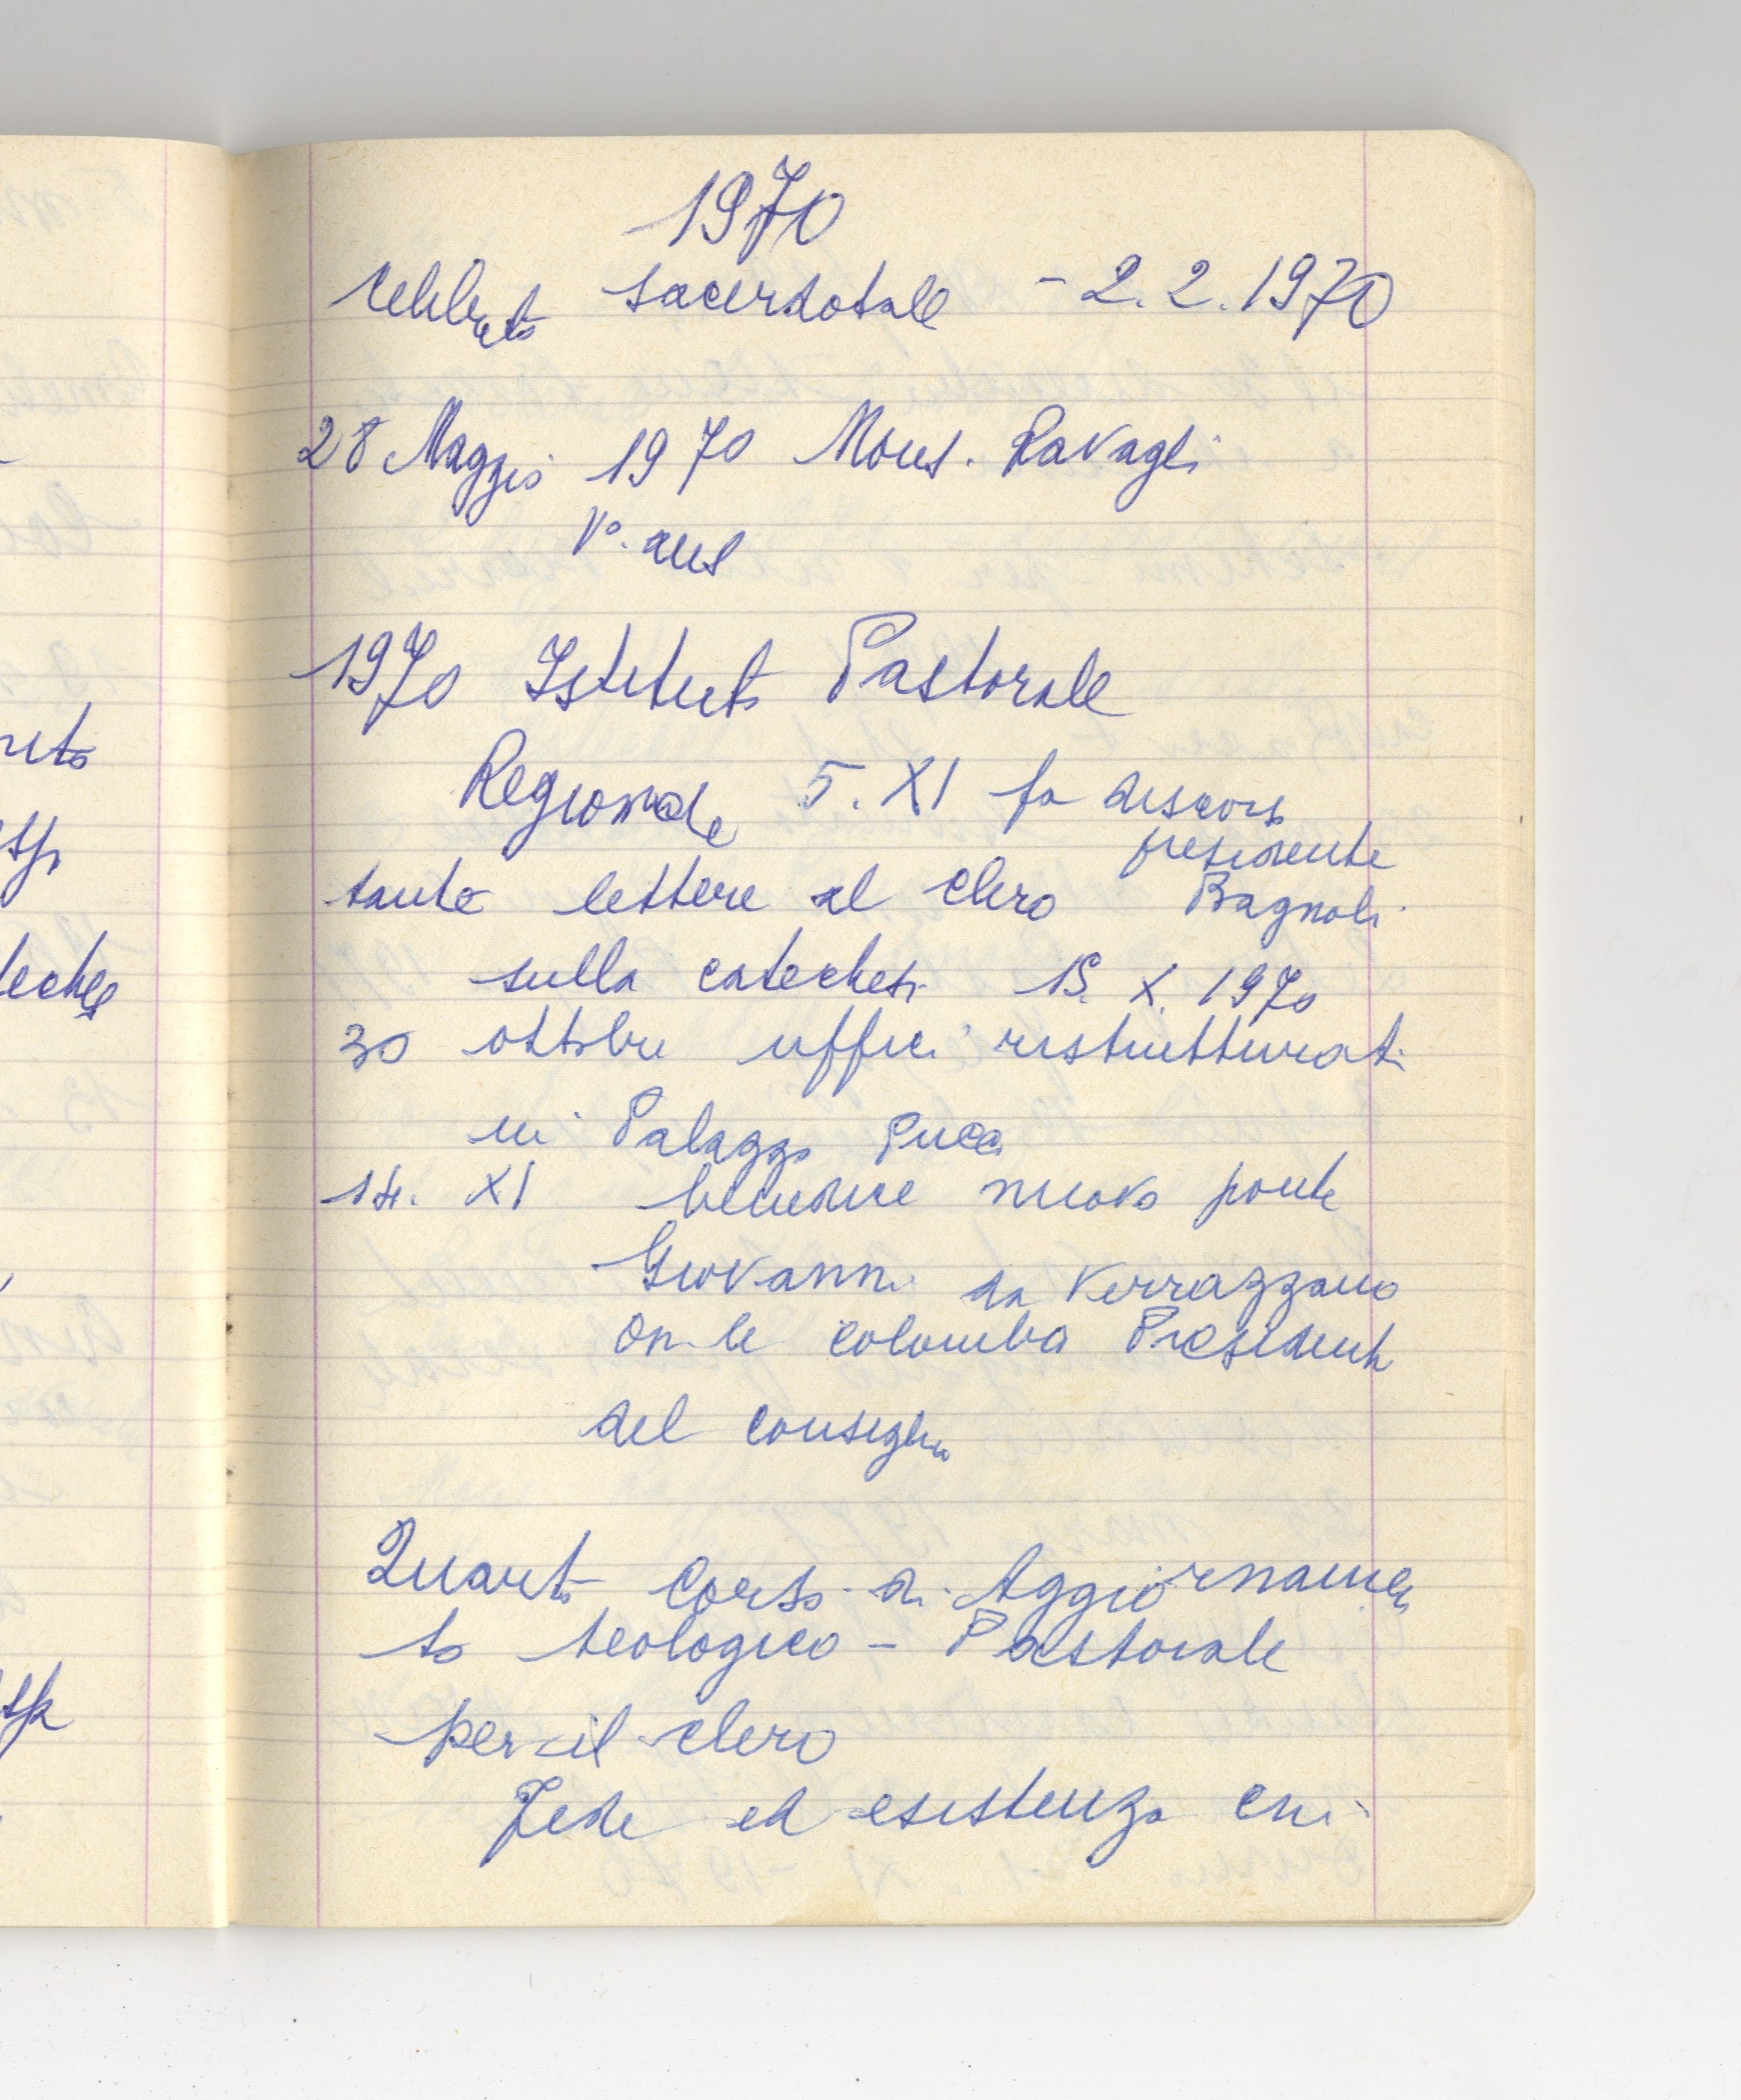 1970
celibato sacerdotale - 2.2.1970
28 Maggio 1970 Mons. Ravagli
V°. aus
1970 Istituto Pastorale
Regionale 5. XI fa discorso
presidente
tante lettere al clero Bagnoli
sulla catechesi 15. X. 1970
30 ottobre uffici ristrutturati
in Palazzo Pucci
14. XI benedice nuovo ponte
Giovanni da Verrazzano
on-le colombo Presidente
del consiglio
Quarto Corso di Aggiornamen
to teologico - Pastorale
per il clero
Fede ed esistenza cri-